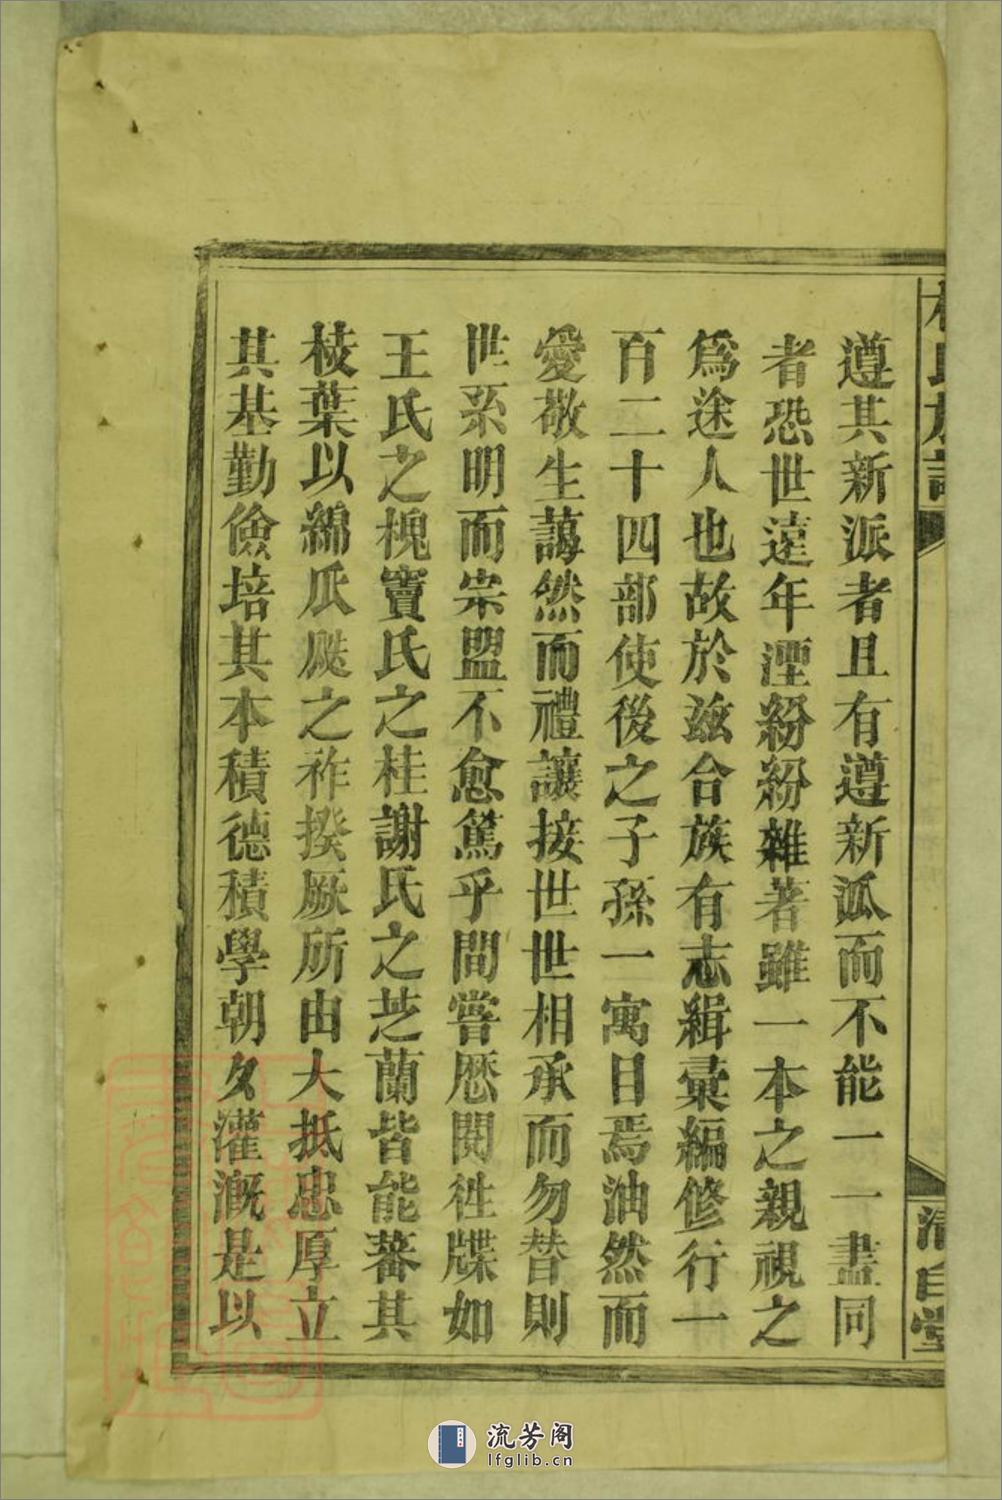 遵其新派者且有遵新派而不能一一盡同
者恐世遠年湮紛紛雜著雖一本之親視之
爲途人也故於兹合族有志緝彙編修行一
百二十四部使後之子孫一寓目焉油然而
愛敬生藹然而禮讓接世世相承而勿替則
世系明而宗盟不愈篤乎間嘗歷閱徃牒如
王氏之槐竇氏之桂謝氏之芝蘭皆能蕃其
枝葉以綿瓜瓞之祚揆厥所由大抵忠厚立
其基勤儉培其本積德積學朝夕灌溉是以
氏族譜
清白堂
流芳阁
lfglib.cn